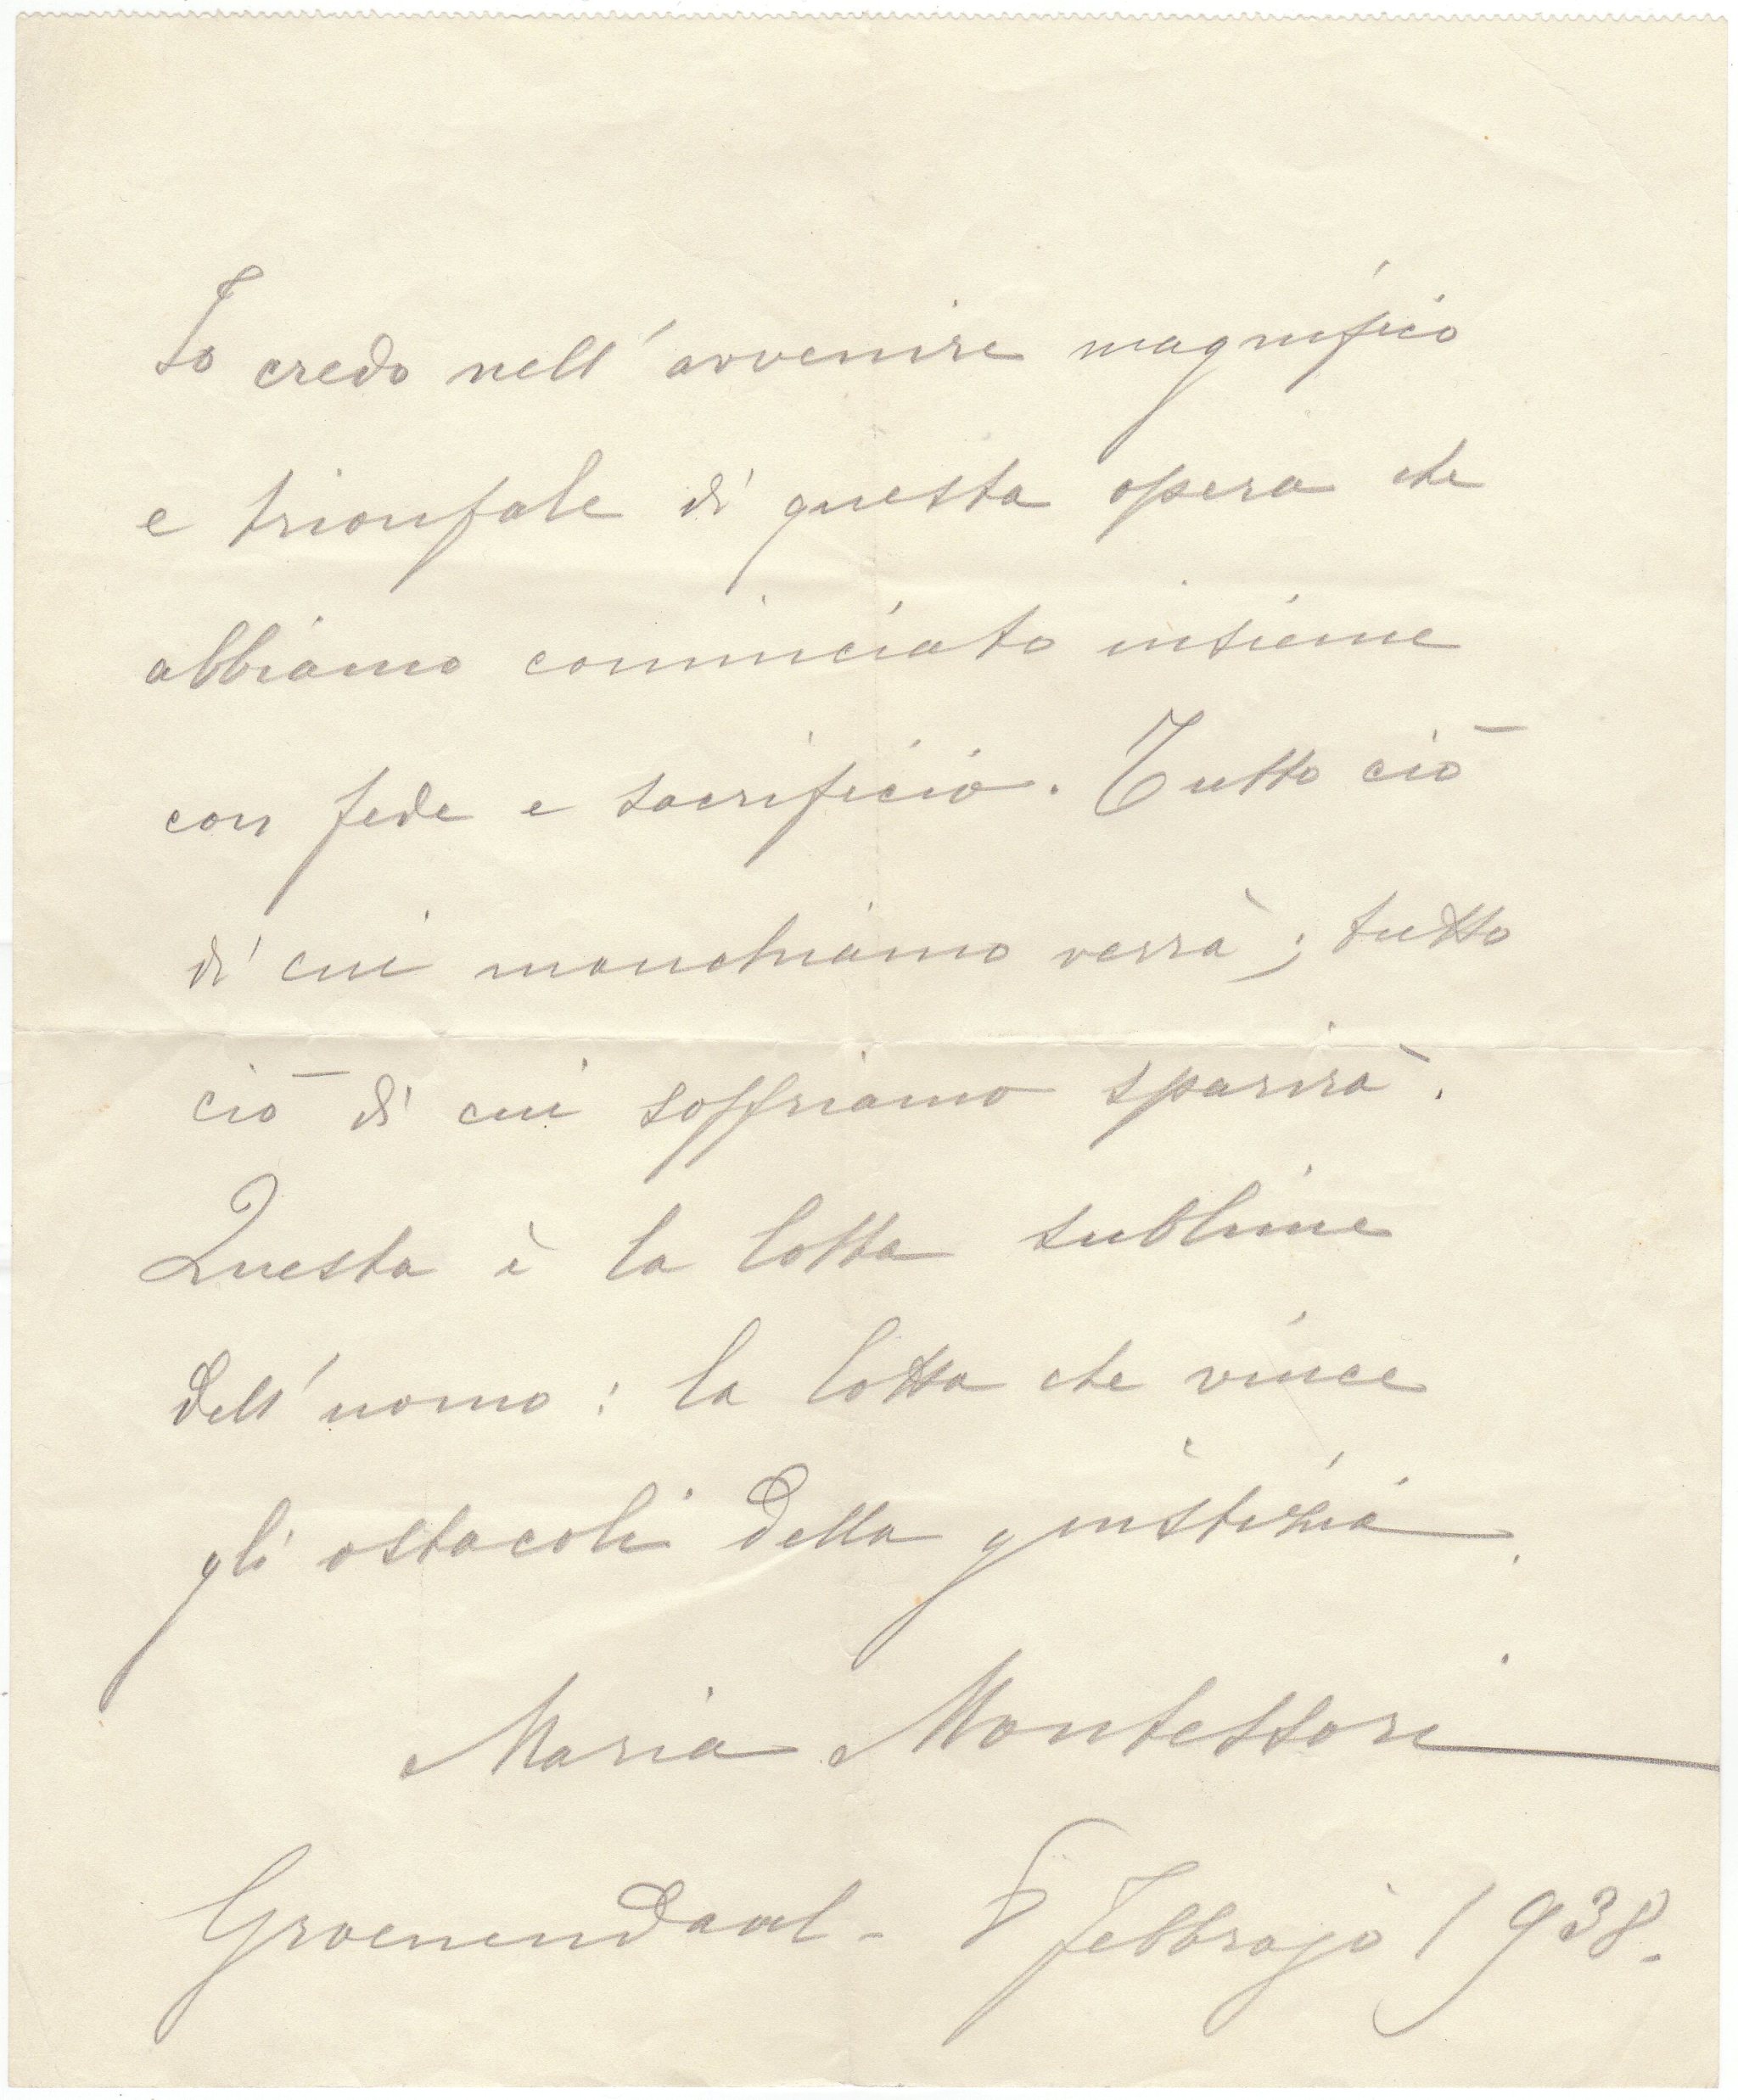 Io credo nell'avvenire magnifico
e trionfale di questa opera che
abbiamo cominciato insieme
con fede e sacrificio. Tutto ciò
di cui manchiamo verrà; tutto
ciò di cui soffriamo sparirà.
Questa è la lotta sublime
dell'uomo: la lotta che vince
gli ostacoli della giustizia.
Maria Montessori
Groenendaal - 8 febbrajo 1938.